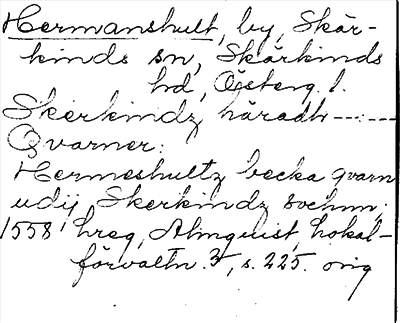 Hermanshult, by, Skär-
kinds sn, Skärkinds
hd, Österg. l.
Skerkindz häradh -----
Qvarner:
Hermeshultz becka qvarn
udij Skerkindz sochnn;
1558 hreg, Almquist, Lokal-
förvaltn. 3, s. 225. orig